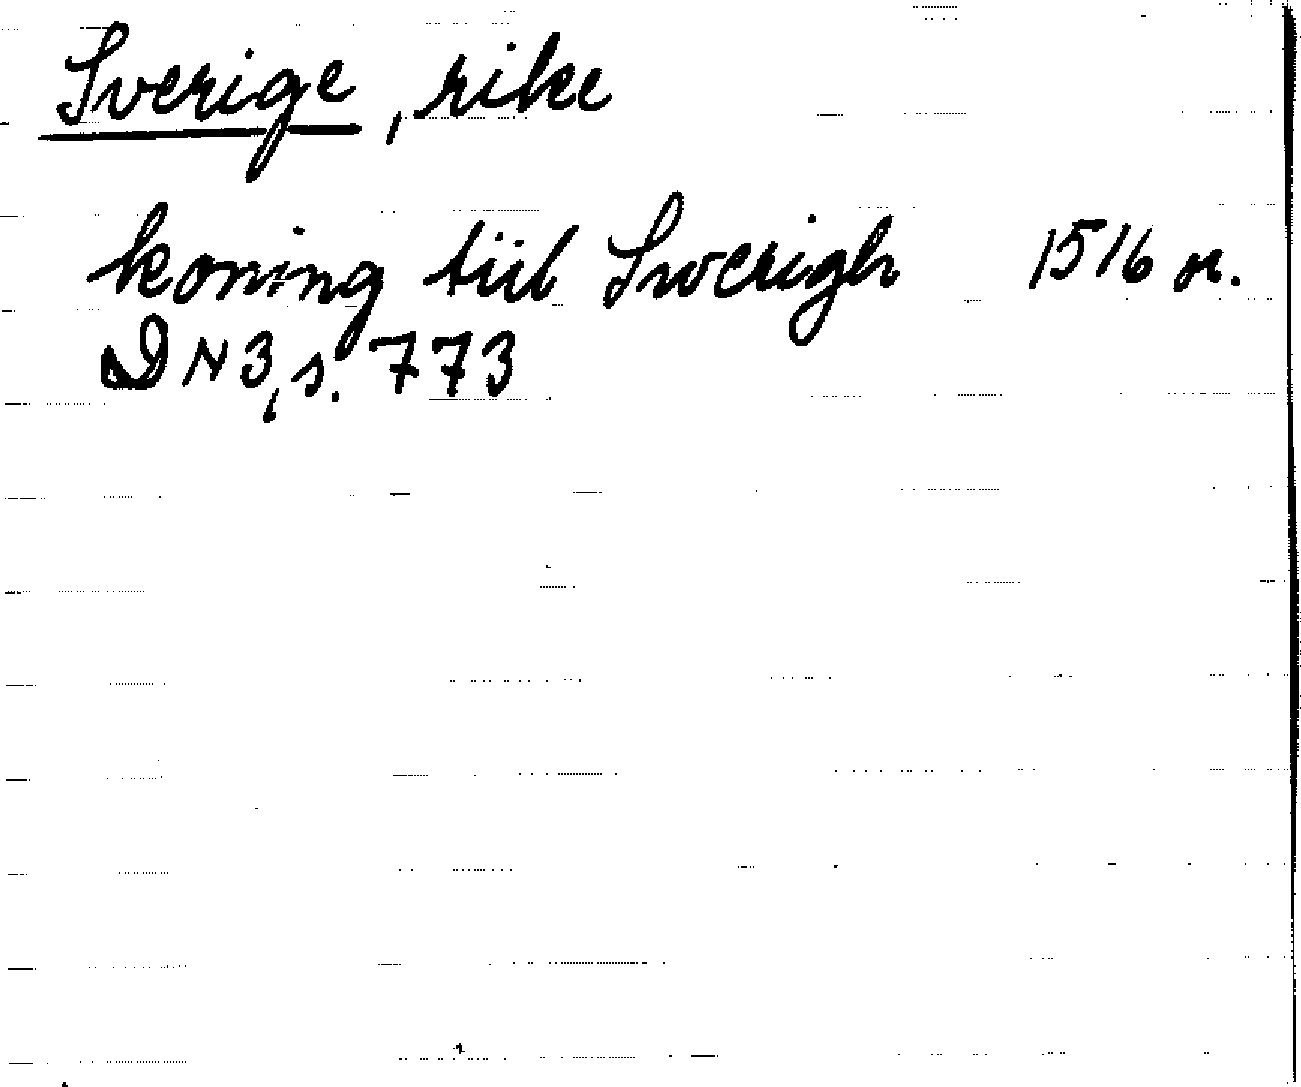 Sverige, rike
koning tiil Swerigh 1516 or.
DN 3, s. 773